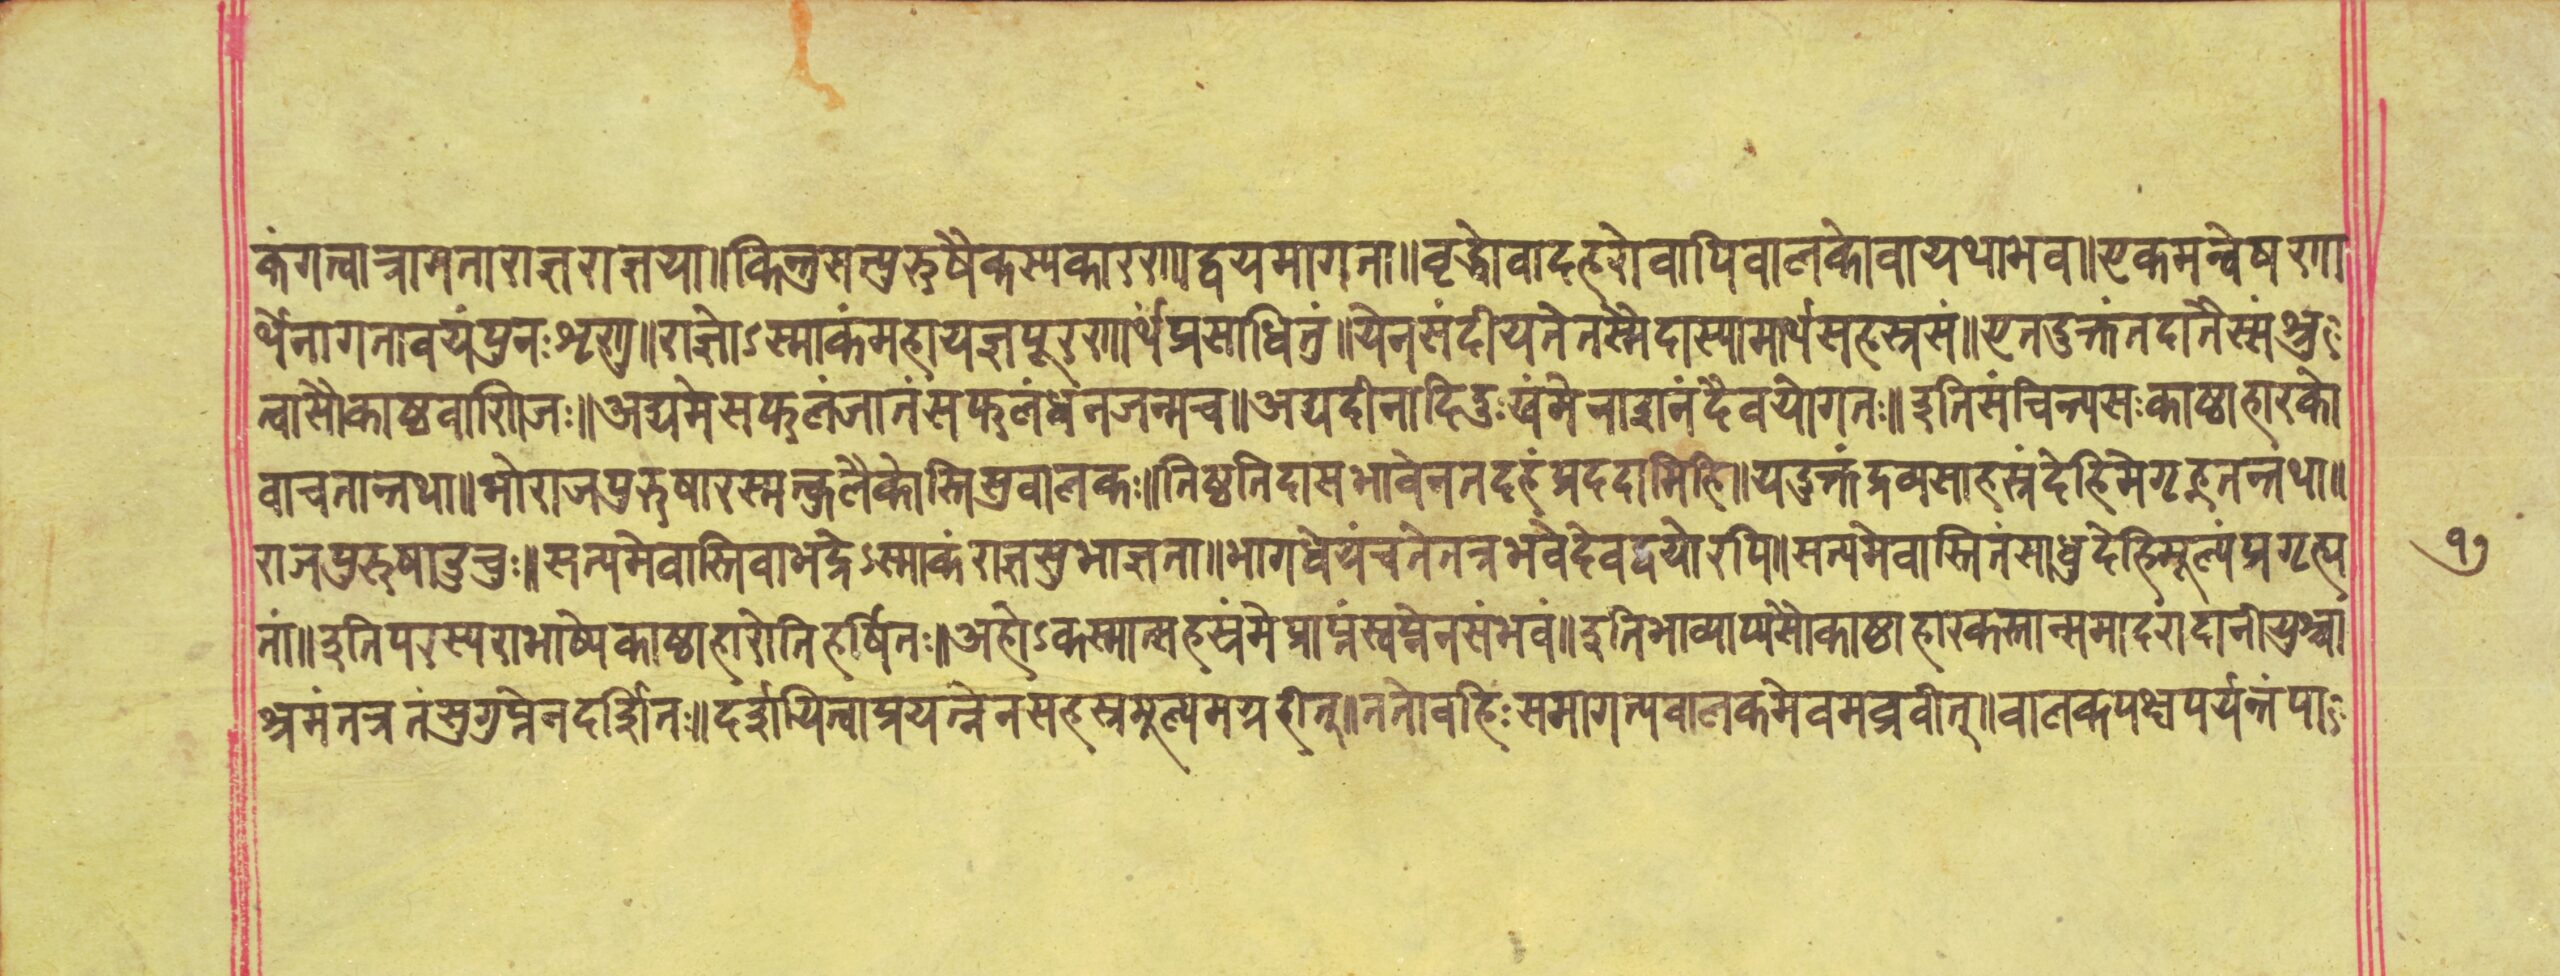 कंगत्वात्रामताराज्ञराज्ञया॥किन्तुसत्पुरुषैकस्यकारणाद्वयमागता॥वृद्धोवादहरोवापिवालकोवायथाभव॥एकमन्वेषणा
र्थेनागतावयंपुनःशृणु॥राज्ञोऽस्माकंमहायज्ञपूरणार्थंप्रसाधितुं॥येनसंदीयतेतस्मैदास्यामार्थसहस्रसं॥एतदुक्तंतदातैस्मंश्रु
त्वासौकाष्ठवाणिजः॥अद्यमेसफलंजातंसफलंधनजन्मच॥अद्यदीनादिदुःखंमेनाशनंदैवयोगतः॥इतिसंचिन्त्यसःकाष्ठाहारको
वाचतान्तथा॥भोराजपुरुषारस्मत्कुलैकोस्तिसुवालकः॥तिष्ठतिदासभावेनतदहंप्रददामिहि॥यदुक्तंद्रव्यसाहस्रंदेहिमेगृह्नतन्तथा॥
राजपुरुषाउचुः॥सत्यमेवास्तिवाभद्रेऽस्माकंराज्ञसुभाज्ञता॥भागधेयंचतेतत्रभवेदेवद्वयोरपि॥सत्यमेवास्तितंसाधुदेहिमूल्यंप्रगृह्य
तां॥इतिपरस्पराभाष्यकाष्ठाहारोतिहर्षितः॥अहोऽकस्मात्सहस्रंमेप्राप्तंस्वप्नेनसंभवं॥इतिभाव्याप्यसौकाष्ठाहारकस्तान्समादरादानीयुश्चा
श्रमंतत्रतंसुगुप्तेनदर्शितः॥दर्शायित्वाप्रयत्नेनसहस्रमूल्यमग्रहीत्॥ततोवहिःसमागत्यवालकमेवमव्रवीत्॥वालकपश्चपर्यन्तंपा
१७